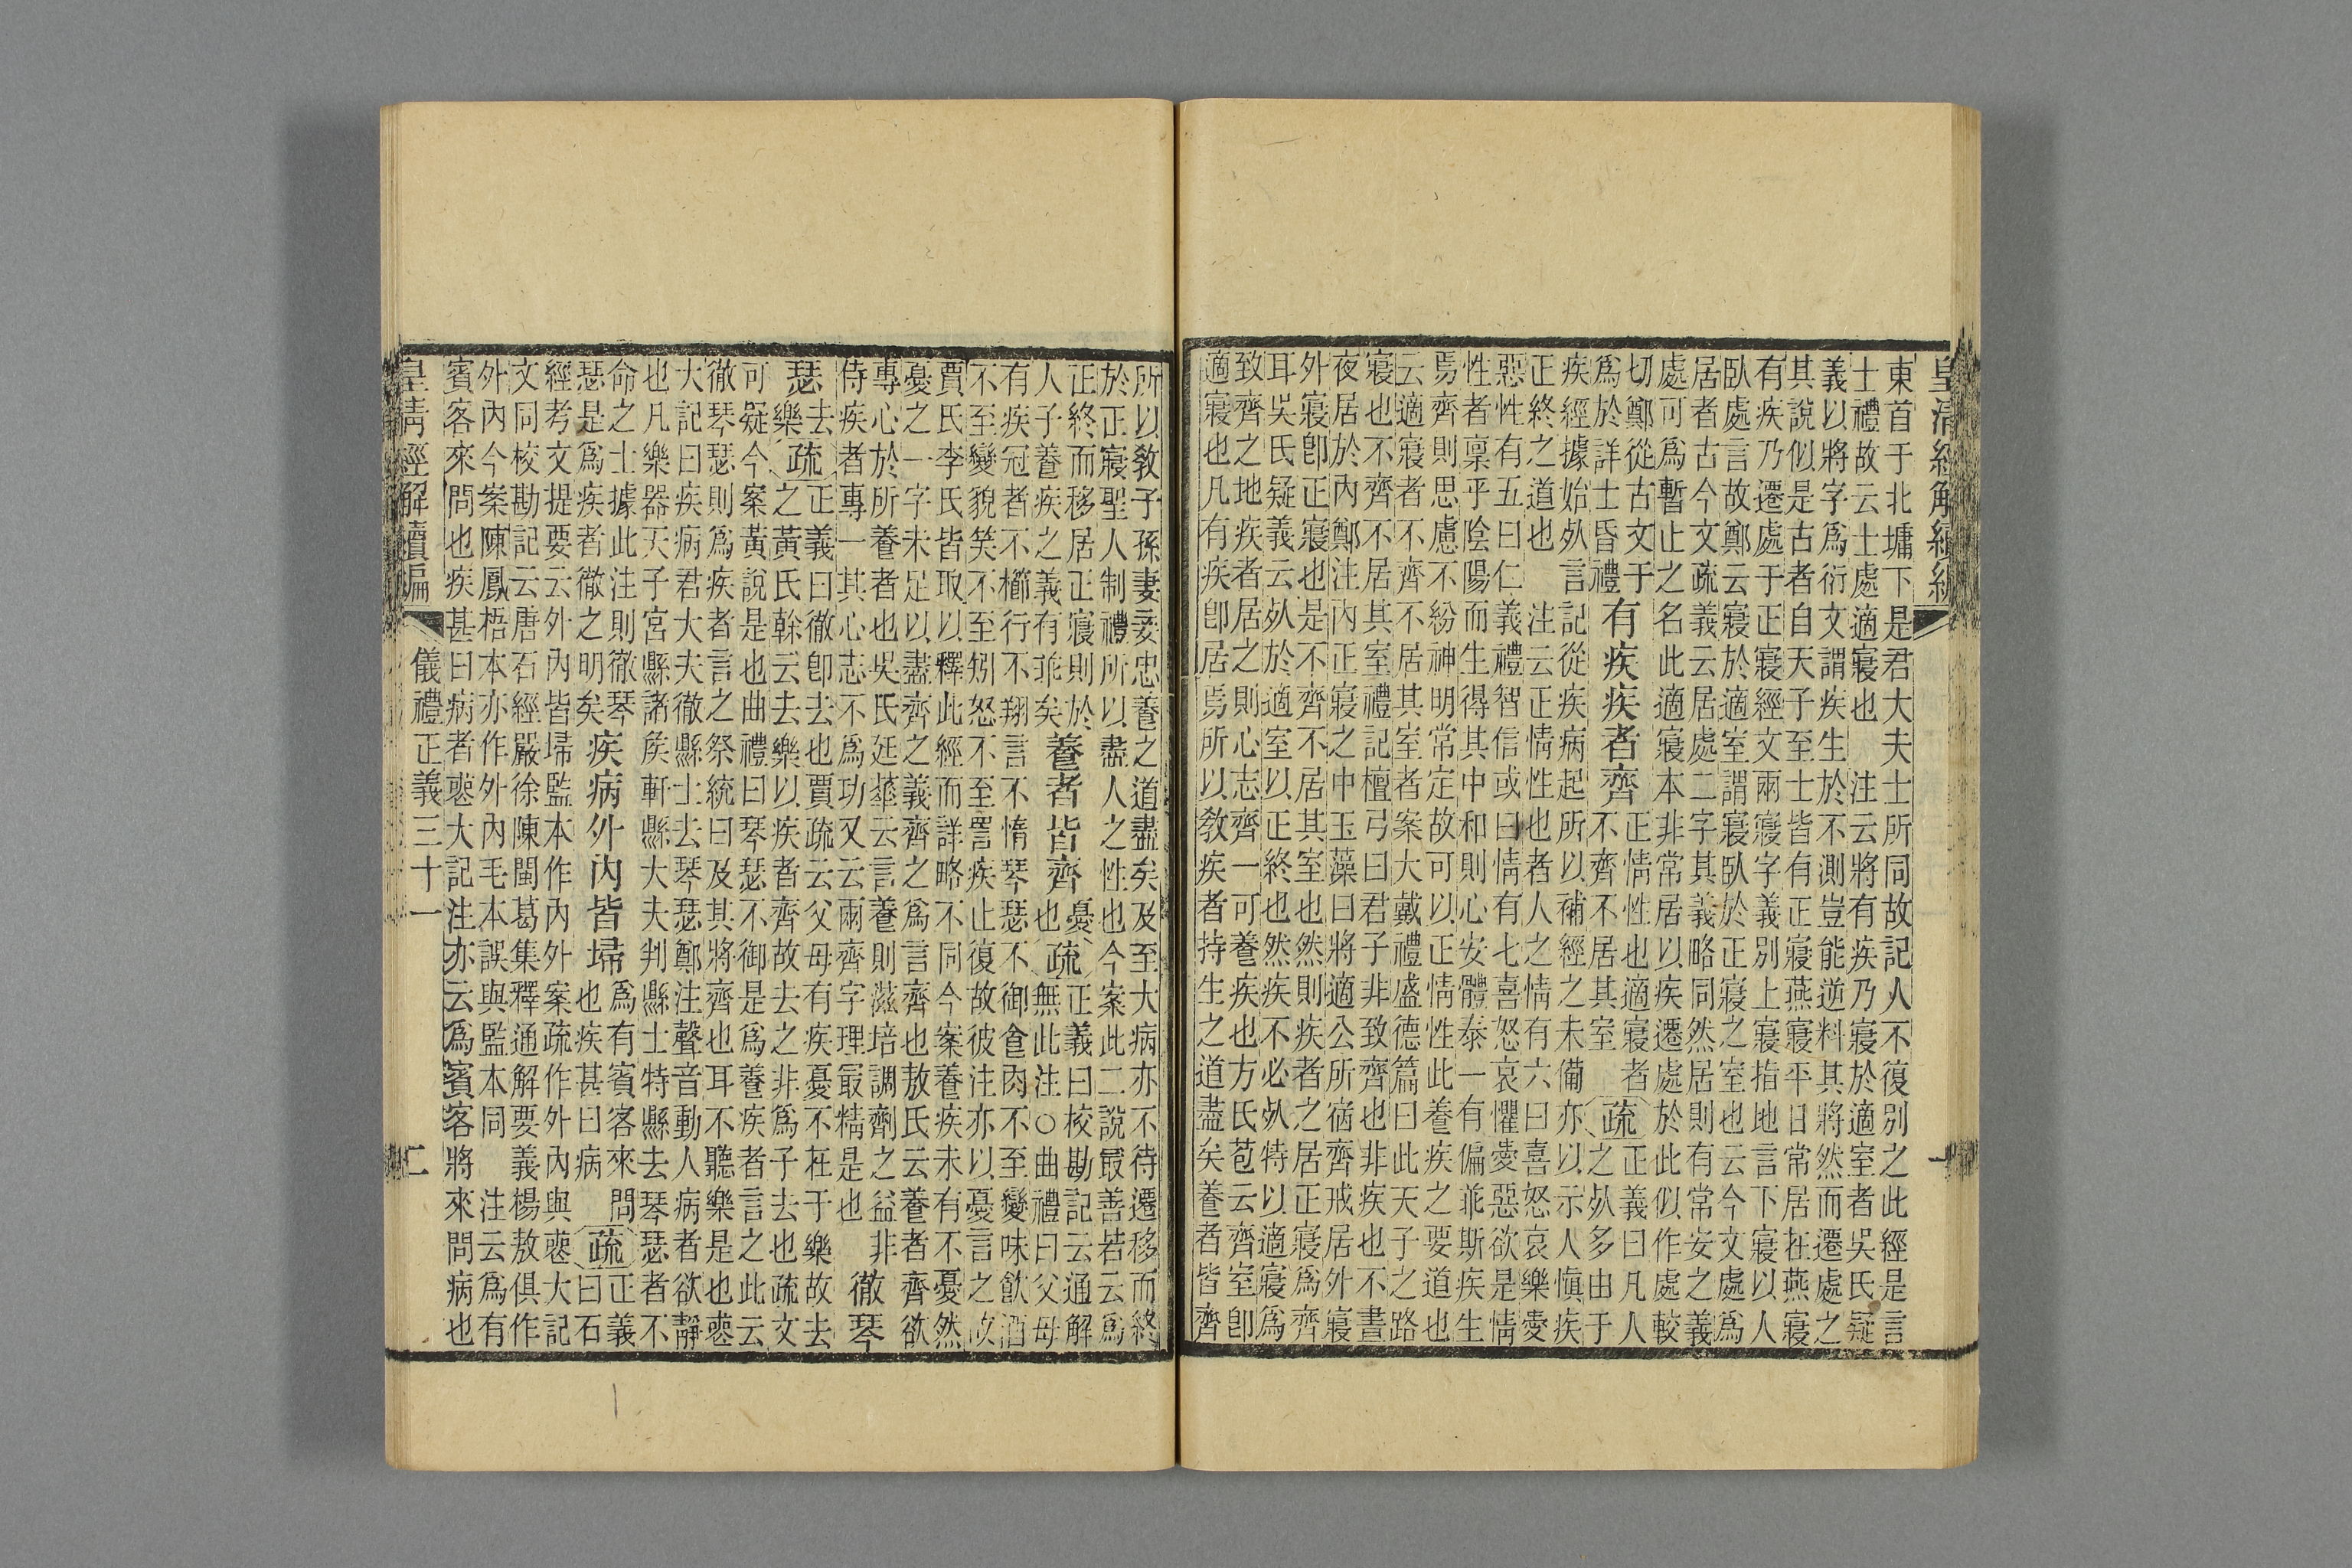 皇清經解續編
一
東首于北墉下是君大夫士所同故記人不復別之此經是言
士禮故云士處適寢也　注云將有疾乃寢於適室者吳氏疑
義以將字爲衍文謂疾生於不測豈能逆料其將然而遷處之
其說似是古者自天子至士皆有正寢燕寢平日常居在燕寢
有疾乃遷處于正寢經文兩寢字義別上寢指地言下寢以人
臥處言故鄭云寢於適室謂寢臥於正寢之室也云今文處爲
居者古今文疏義云居處二字其義略同然居則有常安之義
處可爲暫止之名此適寢本非常居以疾遷處於此似作處較
切鄭從古文于
爲於詳士昏禮
有疾疾者齊
正情性也適寢者
不齊不居其室
疏
正義曰凡人
之𣦸多由于
疾經據始𣦸言　記從疾病起所以補經之未備亦以示人愼疾
正終之道也　注云正情性也者人之情有六曰喜怒哀樂愛
惡性有五曰仁義禮智信或曰情有七喜怒哀懼愛惡欲是情
性者稟乎陰陽而生得其中和則心安體泰一有偏乖斯疾生
焉齊則思慮不紛神明常定故可以正情性此養疾之要道也
云適寢者不齊不居其室者案大戴禮盛德篇曰此天子之路
寢也不齊不居其室禮記檀弓曰君子非致齊也非疾也不晝
夜居於內鄭注內正寢之中玉藻曰將適公所宿齊戒居外寢
外寢卽正寢也是不齊不居其室也然則疾者之居正寢爲齊
耳吳氏疑義云𣦸於適室以正終也然疾不必𣦸特以適寢爲
致齊之地疾者居之則心志齊一可養疾也方氏苞云齊室卽
適寢也凡有疾卽居焉所以敎疾者持生之道盡矣養者皆齊
所以敎子孫妻妾忠養之道盡矣及至大病亦不待遷移而終
於正寢聖人制禮所以盡人之性也今案此二說最善若云爲
正終而移居正寢則於
人子養疾之義有乖矣
養者皆齊
憂
也
疏
正義曰校勘記云通解
無此注○曲禮曰父母
有疾冠者不櫛行不翔言不惰琴瑟不御食肉不至變味飮酒
不至變貌笑不至矧怒不至詈疾止復故彼注亦以憂言之故
賈氏李氏皆取以釋此經而詳略不同今案養疾未有不憂然
憂之一字未足以盡齊之義齊之爲言齊也敖氏云養者齊欲
專心於所養者也吳氏廷華云言養則滋培調劑之益非
侍疾者專一其心志不爲功又云兩齊字理最精是也
徹琴
瑟
去
樂
疏
正義曰徹卽去也賈疏云父母有疾憂不在于樂故去
之黃氏榦云去樂以疾者齊故去之非爲子去也疏文
可疑今案黃說是也曲禮曰琴瑟不御是爲養疾者言之此云
徹琴瑟則爲疾者言之祭統曰及其將齊也耳不聽樂是也喪
大記曰疾病君大夫徹縣士去琴瑟鄭注聲音動人病者欲靜
也凡樂器天子宮縣諸矦軒縣大夫判縣士特縣去琴瑟者不
命之士據此注則徹琴
瑟是爲疾者徹之明矣
疾病外內皆埽
爲有賓客來問
也疾甚曰病
疏
正義
曰石
經考文提要云外內皆埽監本作內外案疏作外內與喪大記
文同校勘記云唐石經嚴徐陳閩葛集釋通解要義楊敖俱作
外內今案陳鳳梧本亦作外內毛本誤與監本同　注云爲有
賓客來問也疾甚曰病者喪大記注亦云爲賓客將來問病也
皇清經解續編　儀禮正義三十一　二